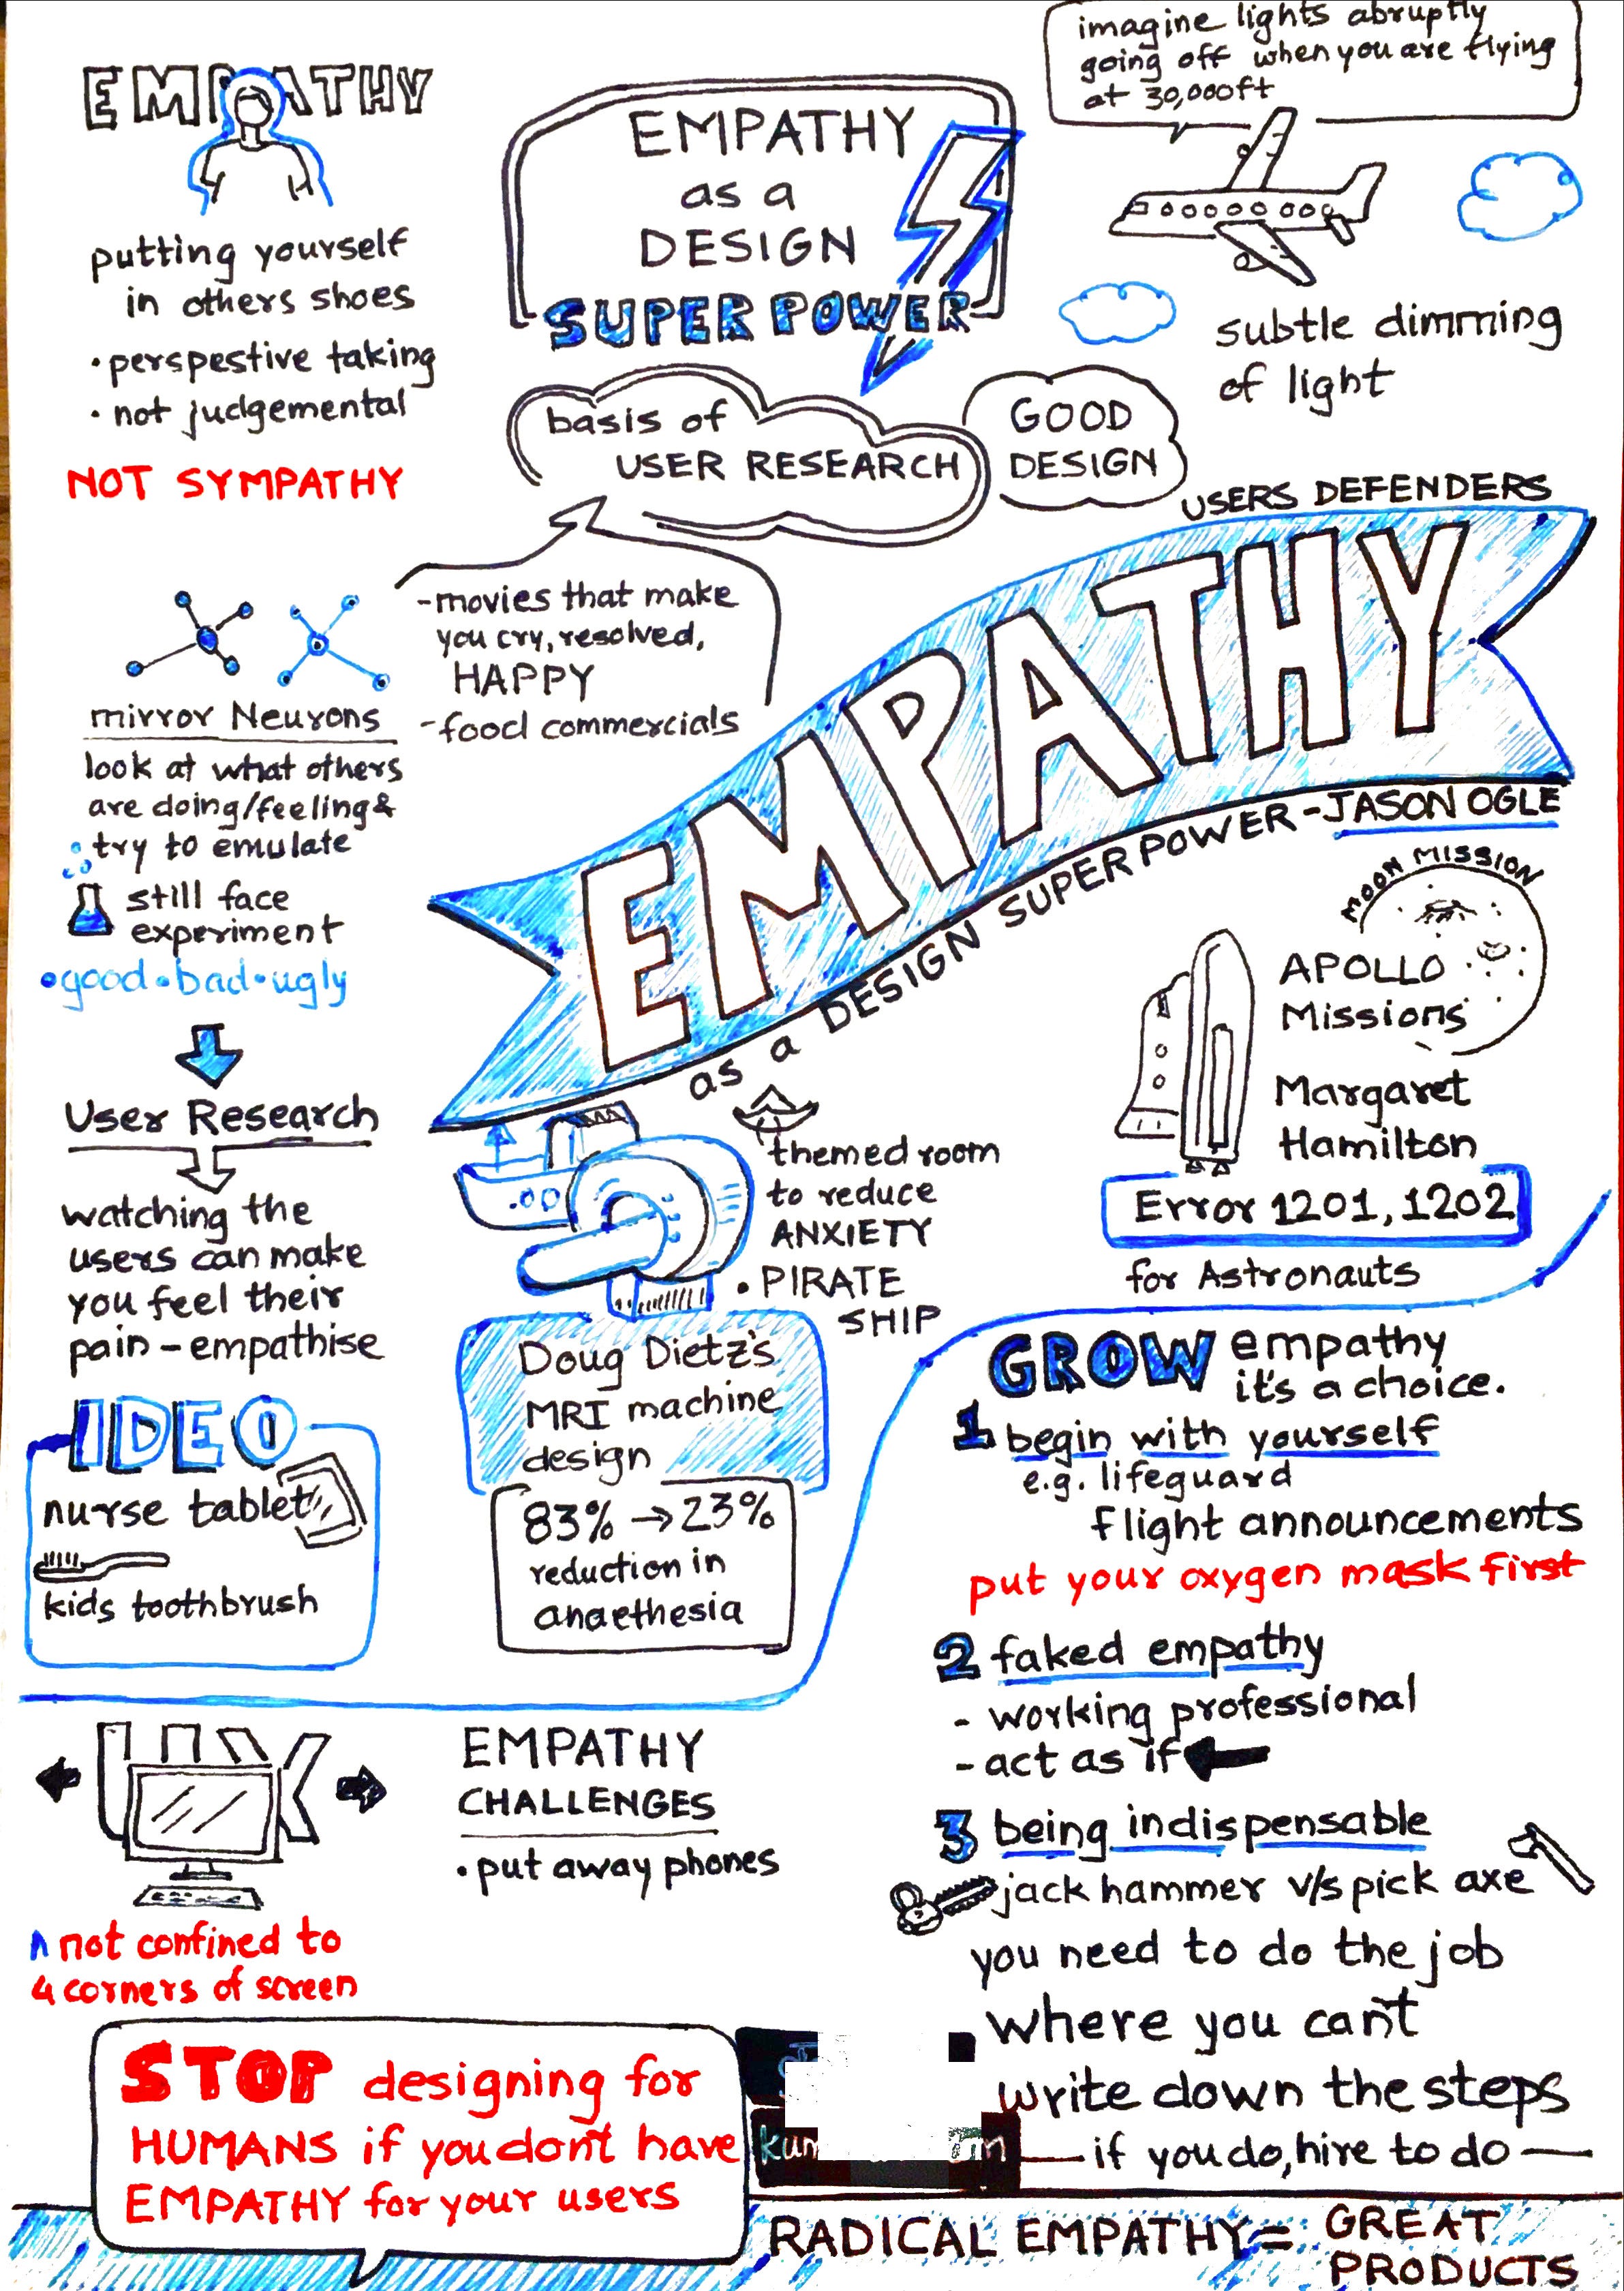 EMPATHY
putting yourself
in others shoes
• perspestive taking
• not judgemental
NOT SYMPATHY
EMPATHY
as a
DESIGN
SUPER POWER
imagine lights abruptly
going off when you are flying
at 30,000ft
subtle dimming
of light
basis of
USER RESEARCH
GOOD
DESIGN
- movies that make
you cry, resolved,
HAPPY
- food commercials
mirror Neurons
look at what others
are doing/feeling &
try to emulate
still face
experiment
• good • bad • ugly
User Research
watching the
users can make
you feel their
pain - empathise
IDEO
nurse tablet
kids toothbrush
USERS DEFENDERS
EMPATHY
as a DESIGN SUPER POWER - JASON OGLE
themed room
to reduce
ANXIETY
• PIRATE
SHIP
Doug Dietz's
MRI machine
design
83% → 23%
reduction in
anaethesia
MOON MISSION
APOLLO
Missions
Margaret
Hamilton
Error 1201, 1202
for Astronauts
GROW empathy
it's a choice.
1 begin with yourself
e.g. lifeguard
flight announcements
put your oxygen mask first
2 faked empathy
- working professional
- act as if
3 being indispensable
jack hammer v/s pick axe
you need to do the job
where you can't
write down the steps
— if you do, hire to do —
not confined to
4 corners of screen
EMPATHY
CHALLENGES
• put away phones
STOP designing for
HUMANS if you don't have
EMPATHY for your users
RADICAL EMPATHY = GREAT
PRODUCTS